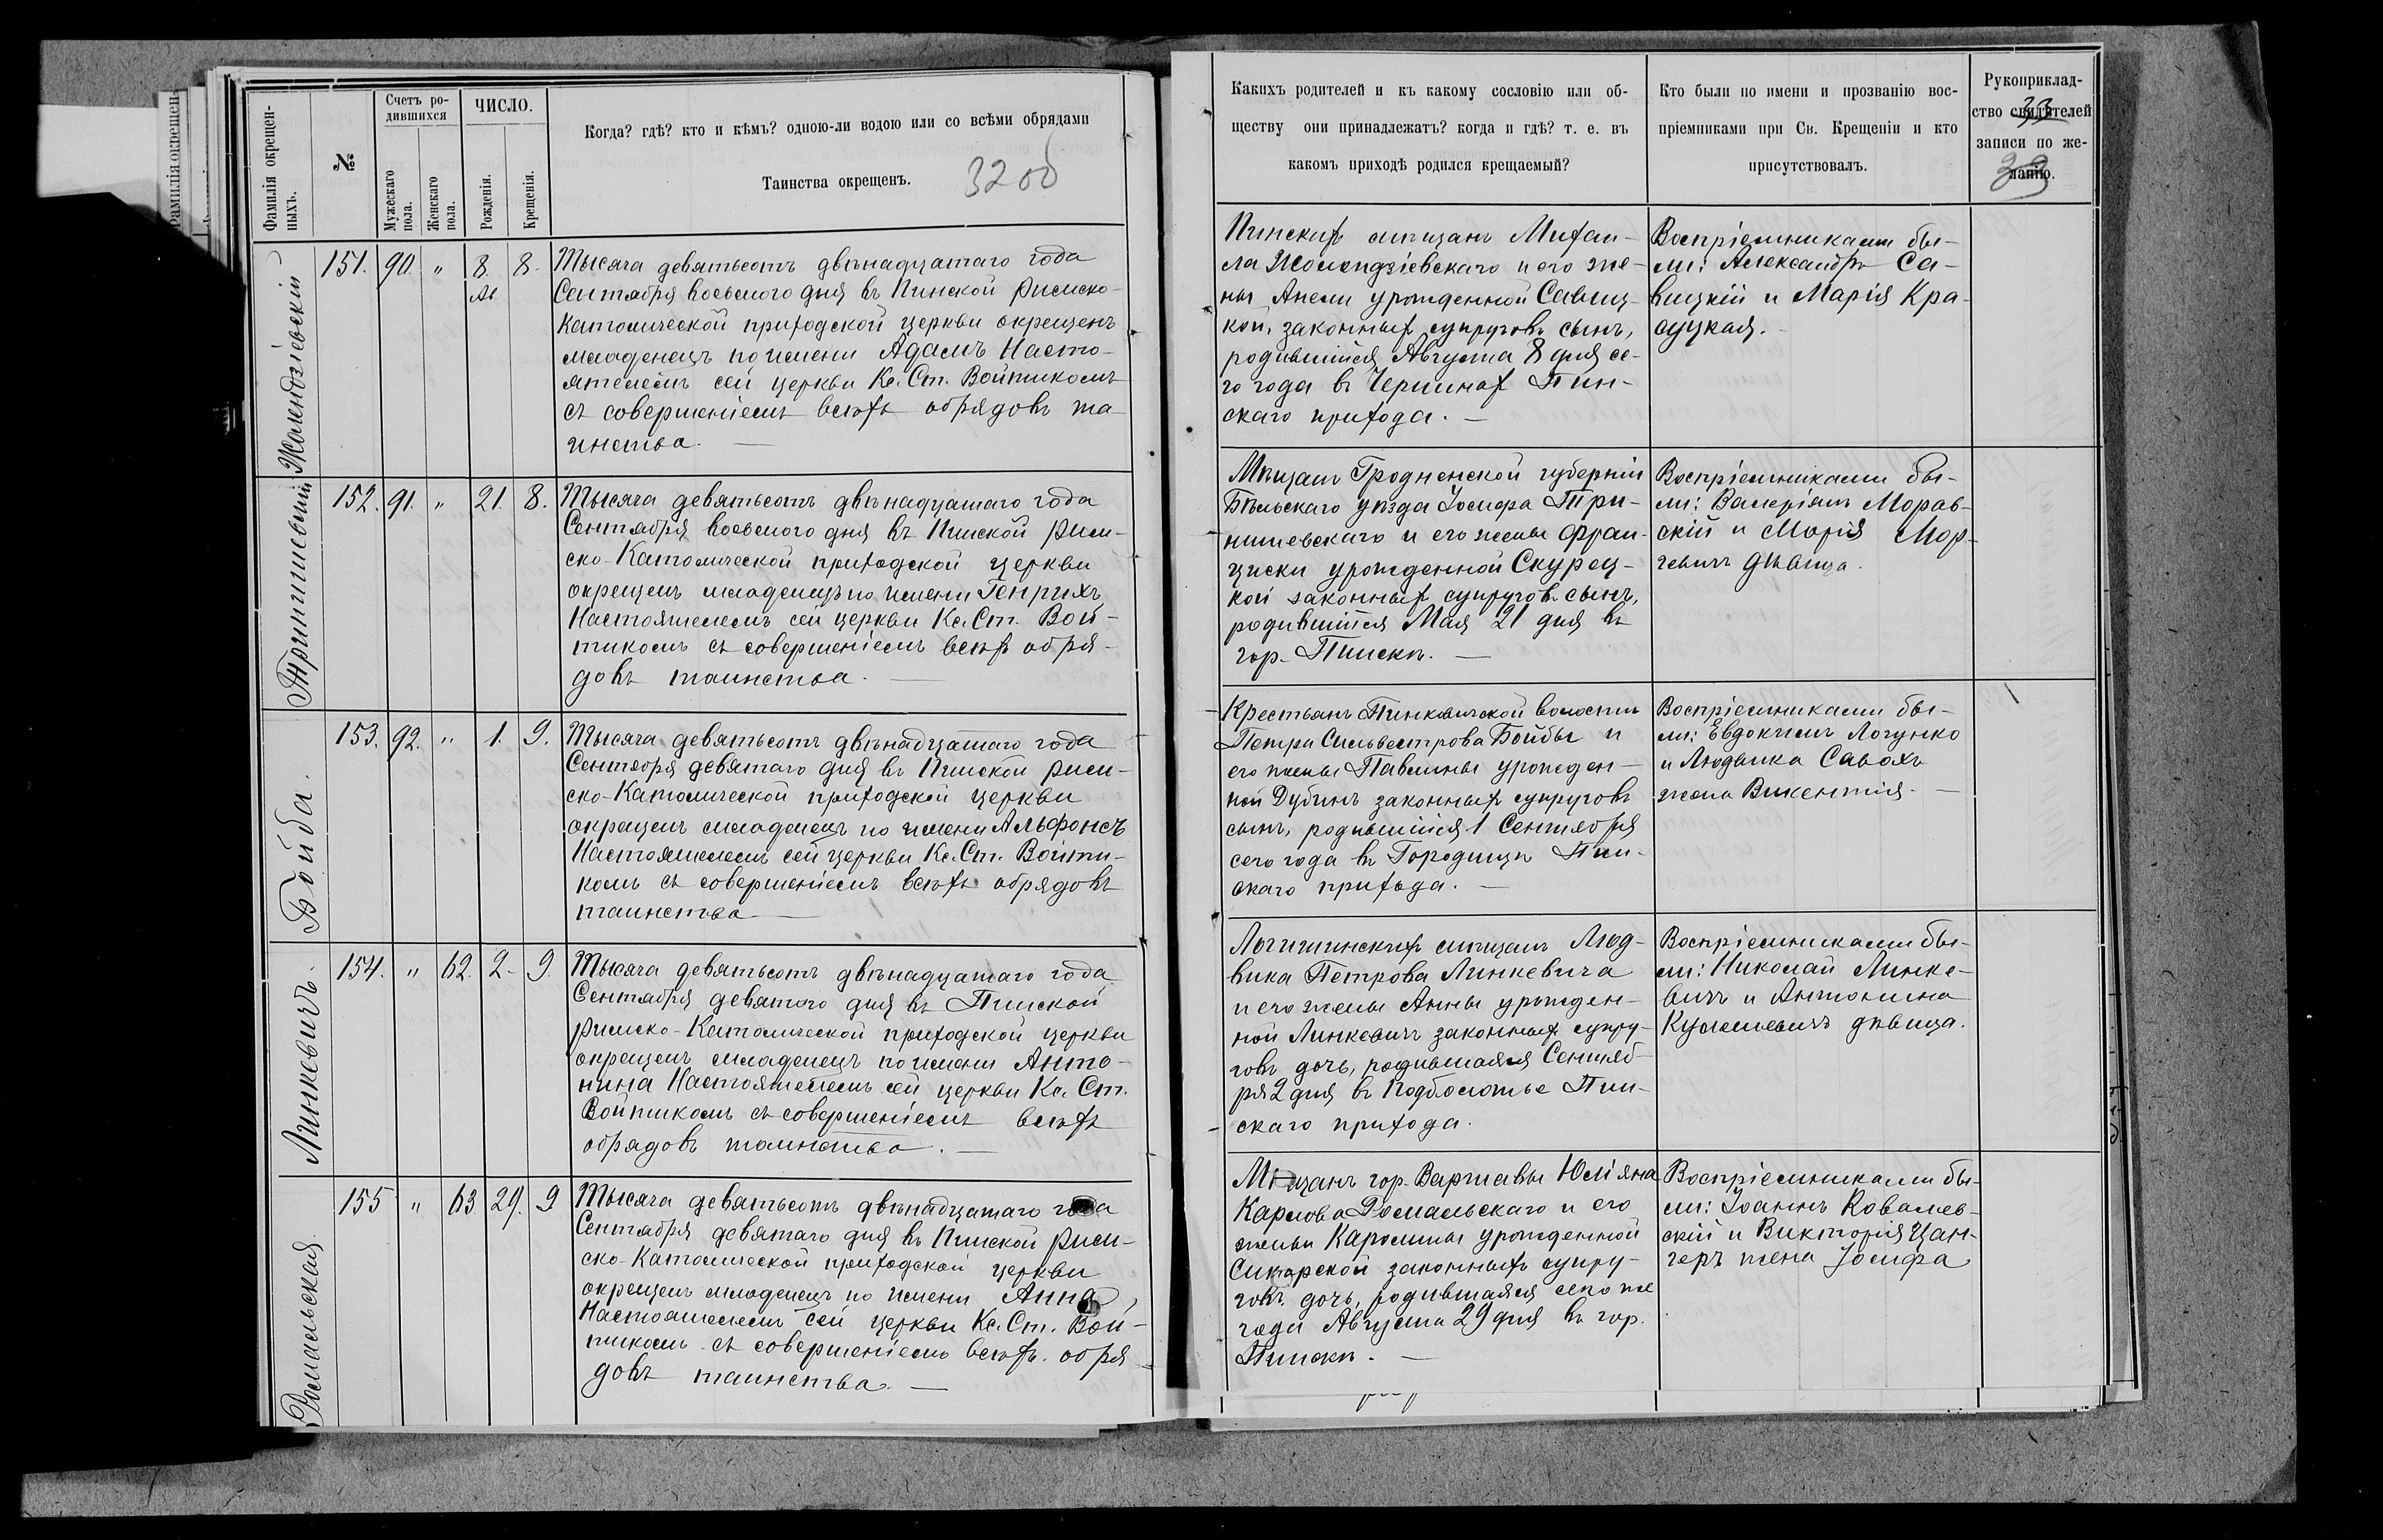 Фамилія окрещен-
ныхъ.
№
Счетъ ро-
дившихся
Мужескаго
пола.
Женскаго
пола.
ЧИСЛО.
Рожденія.
Крещенія.
Когда? гдѣ? кто и кѣмъ? одною-ли водою или со всѣми обрядами
Таинства окрещенъ.
32 об
Каких родителей и къ какому сословію или об-
ществу они принадлежатъ? когда и гдѣ? т. е. въ
какомъ приходѣ родился крещаемый?
Кто были по имени и прозванію вос-
пріемниками при Св. Крещеніи и кто
присутствовалъ.
Рукоприклад-
ство свидѣтелей
записи по же-
ланію.
33
33
Жолендзіевскій
151. 90. " 8. 8.
Ав
Тысяча девятьсотъ двѣнадцатаго года
Сентября восьмого дня въ Пинской Римско-
Католической приходской церкви окрещенъ
младенецъ по имени Адамъ Насто-
ятелемъ сей церкви Кс. Ст. Войтикомъ
съ совершеніемъ всѣхъ обрядовъ та-
инства. —
Пинскихъ мѣщанъ Михаи-
ла Жолендзіевскаго и его же-
ны Анели урожденной Савиц-
кой, законныхъ супруговъ сынъ,
родившійся Августа 8 дня се-
го года въ Чернинах Пин-
скаго прихода. —
Воспріемниками бы-
ли: Александръ Са-
вицкій и Марія Кра-
суцкая.
Тринишевскій
152. 91. " 21. 8.
Тысяча девятьсотъ двѣнадцатаго года
Сентября восьмого дня въ Пинской Рим-
ско-Католической приходской церкви
окрещенъ младенецъ по имени Генрихъ
Настоятелемъ сей церкви Кс. Ст. Вой-
тикомъ съ совершеніемъ всѣхъ обря-
довъ таинства. —
Мѣщанъ Гродненской губерніи
Бѣльскаго уѣзда Іосифа Три-
нишевскаго и его жены Фран-
циски урожденной Скурец-
кой законныхъ супруговъ сынъ,
родившійся Мая 21 дня въ
гор. Пинскѣ. —
Воспріемниками бы-
ли: Валеріянъ Морав-
скій и Марія Мар-
гевичъ дѣвица.
Бойба.
153. 92. " 1. 9.
Тысяча девятьсотъ двѣнадцатаго года
Сентября девятаго дня въ Пинской Рим-
ско-Католической приходской церкви
окрещенъ младенецъ по имени Альфонсъ
Настоятелемъ сей церкви Кс. Ст. Войти-
комъ съ совершеніемъ всѣхъ обрядовъ
таинства —
Крестьянъ Пинковичской волости
Петра Сильвестрова Бойбы и
его жены Павлины урожден-
ной Дубинъ законныхъ супруговъ
сынъ, родившійся 1 Сентября
сего года въ Городищѣ Пин-
скаго прихода. —
Воспріемниками бы-
ли: Евдокимъ Логунко
и Людвика Савохъ
жена Викентія. —
Линкевичъ.
154. " 62. 2. 9.
Тысяча девятьсотъ двѣнадцатаго года
Сентября девятого дня въ Пинской
Римско-Католической приходской церкви
окрещенъ младенецъ по имени Анто-
нина Настоятелемъ сей церкви Кс. Ст.
Войтикомъ съ совершеніемъ всѣхъ
обрядовъ таинства. —
Логишинскихъ мѣщанъ Люд-
вика Петрова Линкевича
и его жены Анны урожден-
ной Линкевичъ законныхъ супру-
говъ дочь, родившаяся Сентяб-
ря 2 дня въ Подболотье Пин-
скаго прихода.
Воспріемниками бы-
ли: Николай Линке-
вичъ и Антонина
дѣвица.
Ромальская
155 " 63. 29. 9
Тысяча девятьсотъ двѣнадцатаго года
Сентября девятаго дня въ Пинской Рим-
ско-Католической приходской церкви
окрещенъ младенецъ по имени Анна,
Настоятелемъ сей церкви Кс. Ст. Вой-
тикомъ съ совершеніемъ всѣхъ обря-
довъ таинства. —
Мѣщанъ гор. Варшавы Юліяна
Карлова Ромальскаго и его
жены Каролины урожденной
Сикорской законныхъ супру-
говъ дочь, родившаяся сего же
года Августа 29 дня въ гор.
Пинскѣ. —
Воспріемниками бы-
ли: Іоаннъ Ковалев-
скій и Викторія Цан-
геръ жена Іосифа